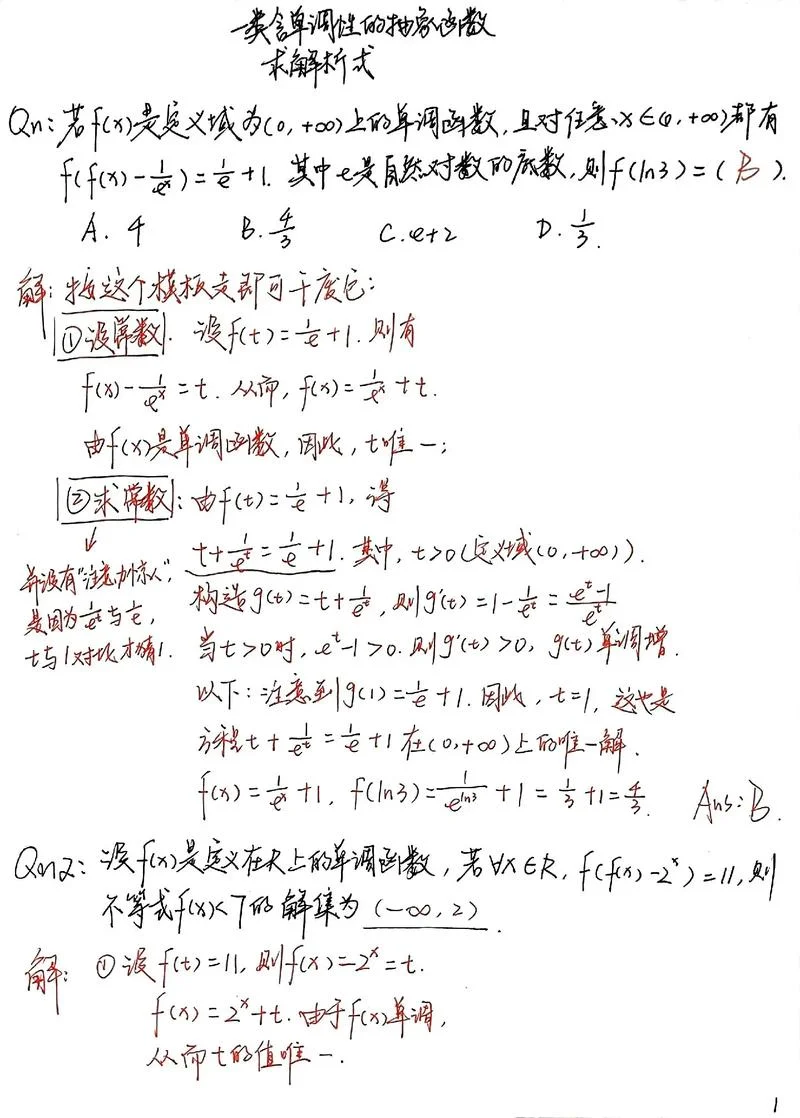 一类含单调性的抽象函数
求解析式
Qn1: 若f(x)是定义域为(0, +∞)上的单调函数, 且对任意x∈(0, +∞)都有
f(f(x)-1/e^x)=1/e+1. 其中e是自然对数的底数, 则f(ln3)=( B ).
A. 4 B. 4/3 C. e+2 D. 1/3.
解: 按这个模板走即可干废它:
①设常数. 设f(t)=1/e+1. 则有
f(x)-1/e^x=t. 从而, f(x)=1/e^x+t.
由f(x)是单调函数, 因此, t唯一;
②求常数: 由f(t)=1/e+1, 得
t+1/e^t=1/e+1. 其中, t>0(定义域(0, +∞)).
并没有"注意力惊人",
是因为1/e^t与1/e,
t与1对比, 才猜1.
构造g(t)=t+1/e^t, 则g'(t)=1-1/e^t=(e^t-1)/e^t
当t>0时, e^t-1>0. 则g'(t)>0, g(t)单调增.
以下: 注意到g(1)=1/e+1. 因此, t=1, 这也是
方程t+1/e^t=1/e+1在(0,+∞)上的唯一解.
f(x)=1/e^x+1, f(ln3)=1/e^ln3+1=1/3+1=4/3. Ans: B.
Qn2: 设f(x)是定义在R上的单调函数, 若∀x∈R, f(f(x)-2^x)=11, 则
不等式f(x)<7的解集为 (-∞, 2) .
解: ①设f(t)=11, 则f(x)-2^x=t.
f(x)=2^x+t. 由于f(x)单调,
从而t的值唯一.
1